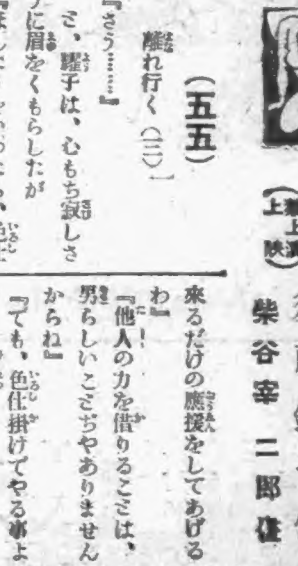 柴谷宰二郎
(五五)
離れ行く(三)
『さう……』
と、曜子は、心もち寂しさ
うに眉をくもらしたが
來るだけの應援をしてあげる
わ』
『他人の力を借りることは、
男らしいことぢやありません
からね』
『でも、色仕掛けでやる事よ